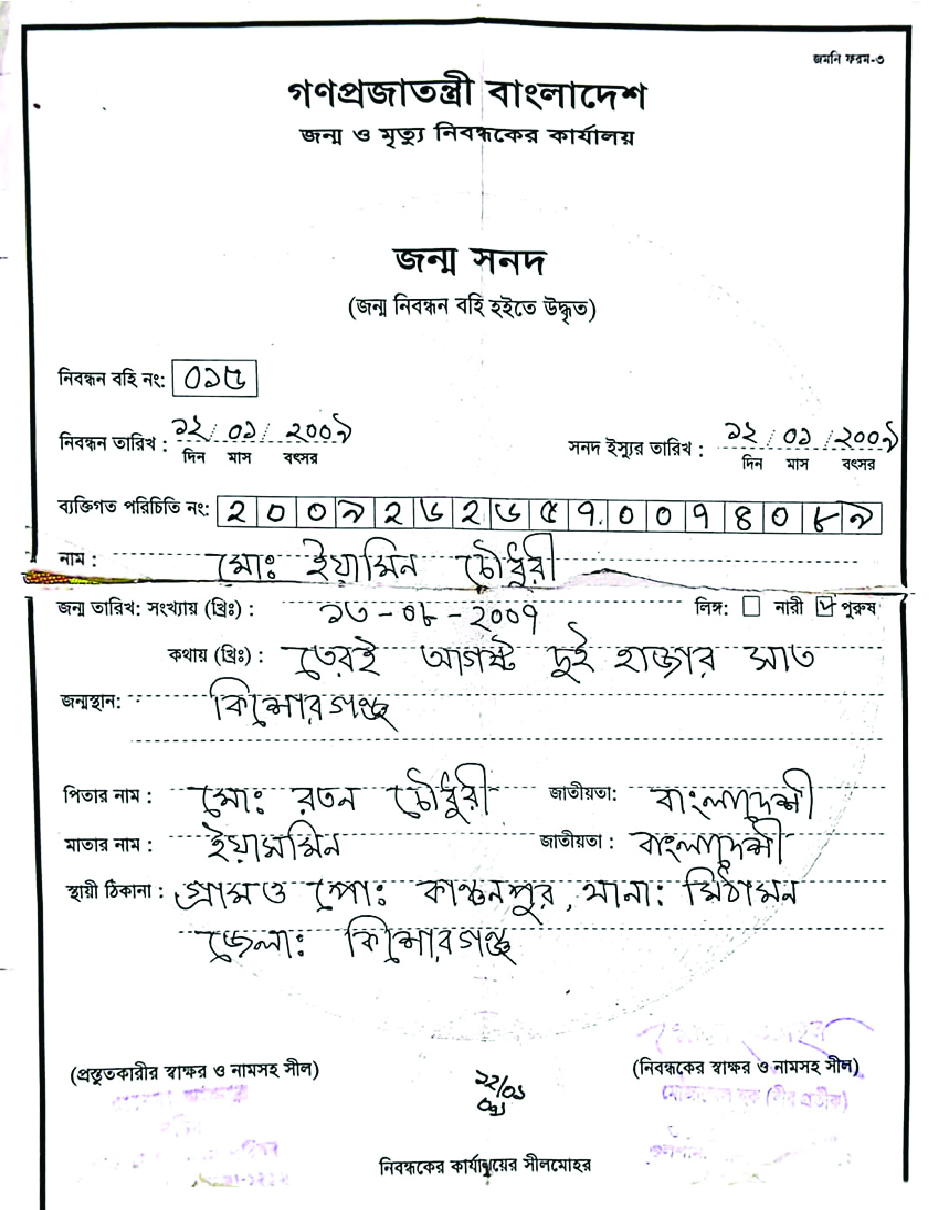 জমনি ফরম-৩
গণপ্রজাতন্ত্রী বাংলাদেশ
জন্ম ও মৃত্যু নিবন্ধকের কার্যালয়
জন্ম সনদ
(জন্ম নিবন্ধন বহি হইতে উদ্ধৃত)
নিবন্ধন বহি নং: ০১৫
নিবন্ধন তারিখ : ১২/ ০১/ ২০০৯ সনদ ইস্যুর তারিখ : ১২/ ০১/ ২০০৯
দিন মাস বৎসর দিন মাস বৎসর
ব্যক্তিগত পরিচিতি নং: ২০০৯২৬২৬৫৭.০০৭৪০৮৯
নাম : মোঃ ইয়ামিন চৌধুরী
জন্ম তারিখ: সংখ্যায় (খ্রিঃ) : ১৩-০৮-২০০৭ লিঙ্গ: নারী পুরুষ
কথায় (খ্রিঃ) : তেরই আগষ্ট দুই হাজার সাত
জন্মস্থান: কিশোরগঞ্জ
পিতার নাম : মোঃ রতন চৌধুরী জাতীয়তা: বাংলাদেশী
মাতার নাম : ইয়াসমিন জাতীয়তা : বাংলাদেশী
স্থায়ী ঠিকানা : গ্রাম ও পোঃ কাঞ্চনপুর, থানা: মিঠামন
জেলাঃ কিশোরগঞ্জ
(প্রস্তুতকারীর স্বাক্ষর ও নামসহ সীল) (নিবন্ধকের স্বাক্ষর ও নামসহ সীল)
১২/০১
০৯
(বীর প্রতীক)
নিবন্ধকের কার্যালয়ের সীলমোহর